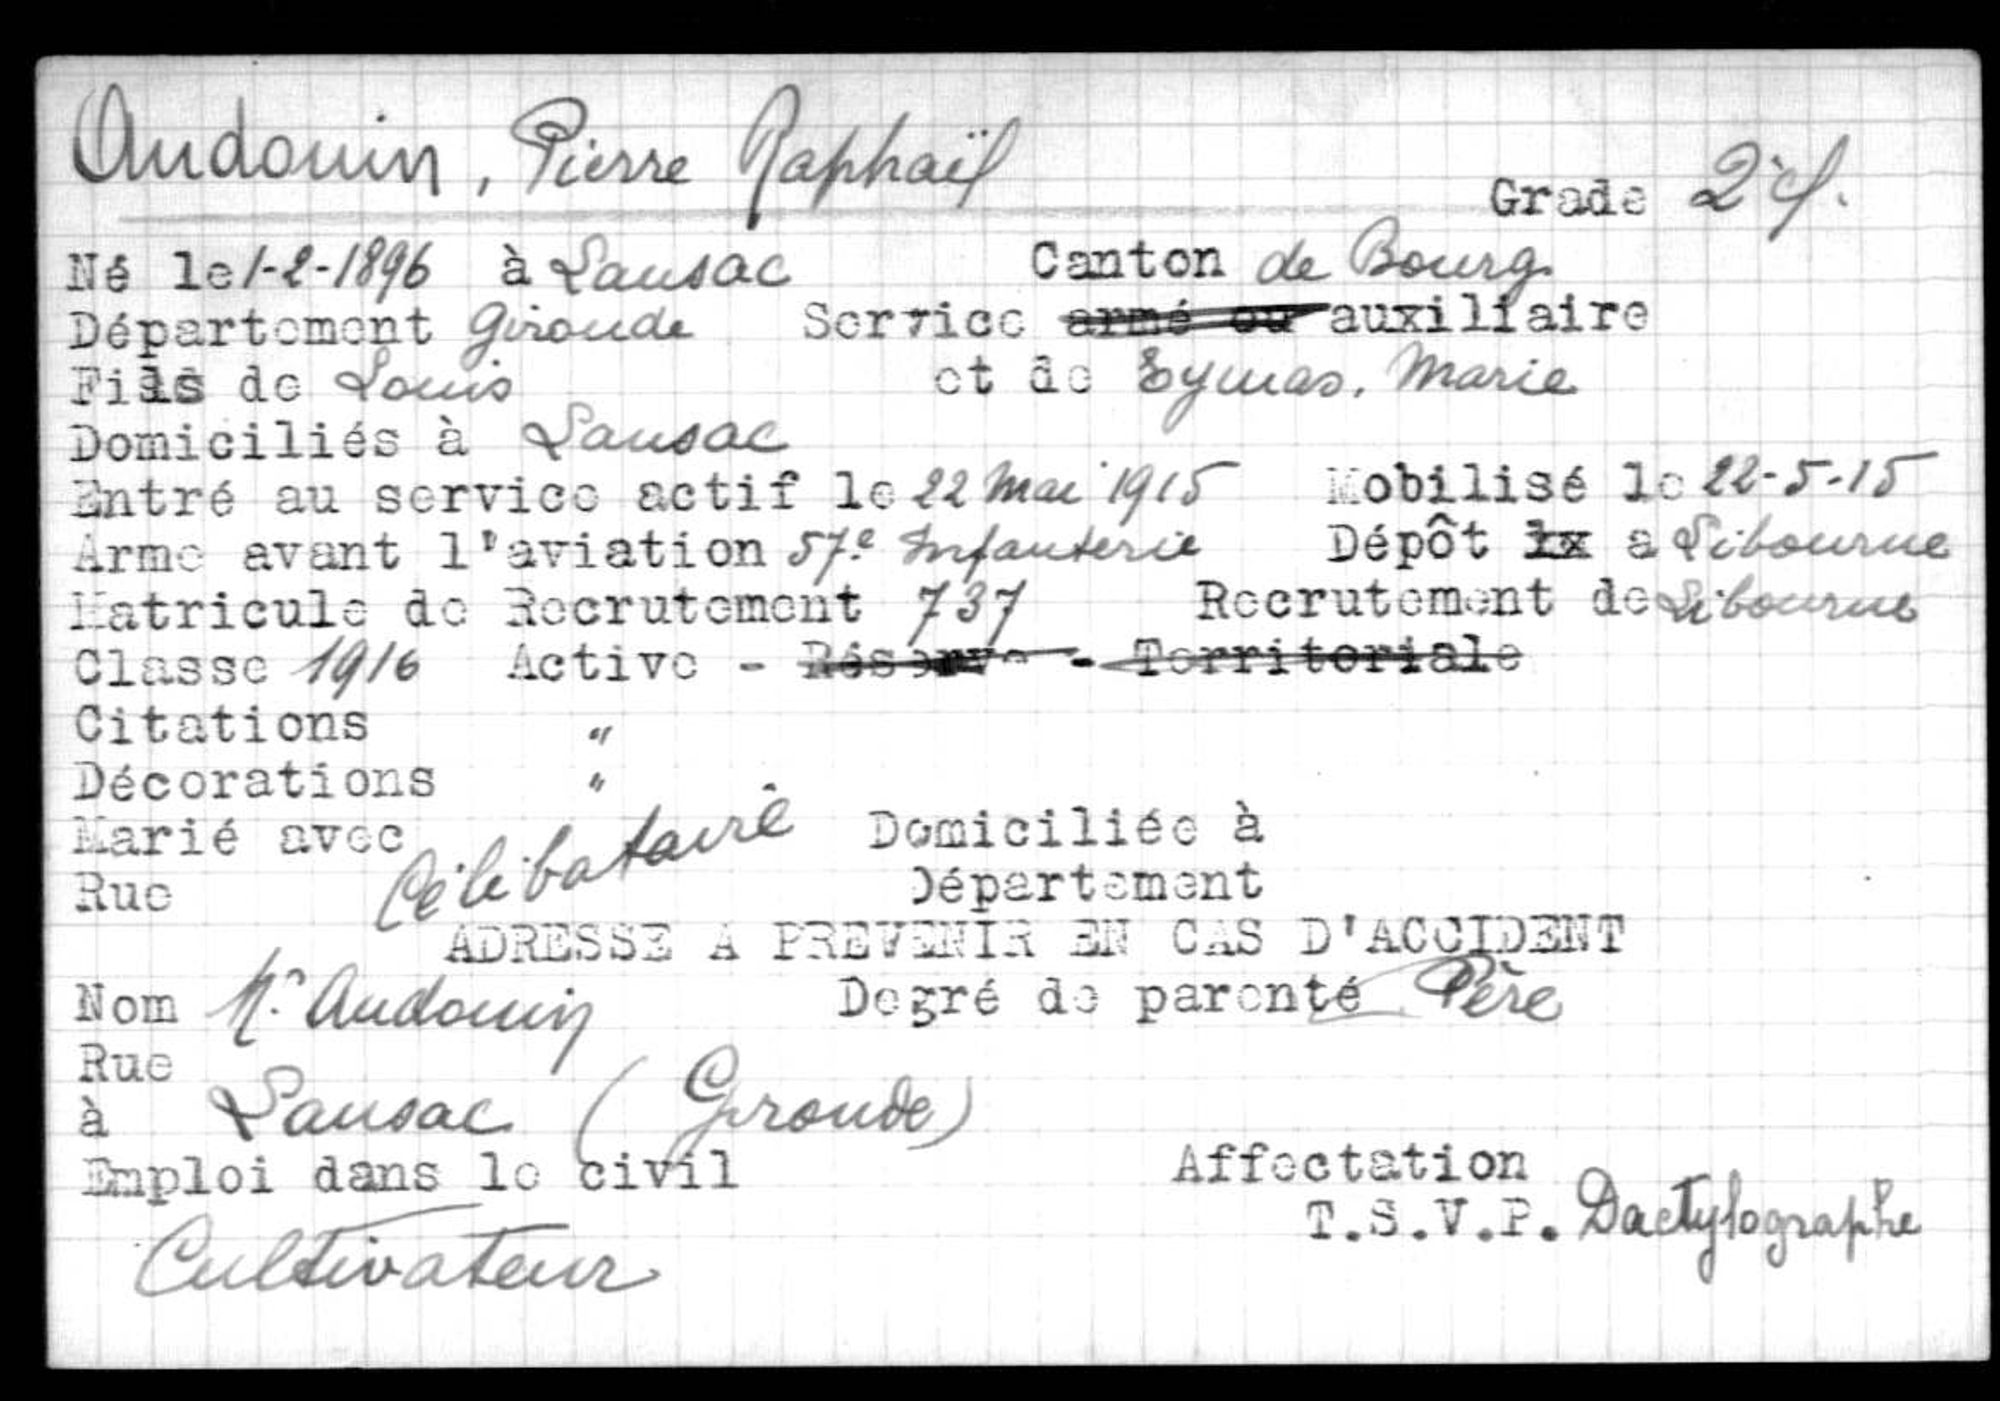 Audouin, Pierre Raphaël
Grade 2e cl.
Né le 1-2-1896 à Lansac Canton de Bourg
Département Gironde Service armé ou auxiliaire
Fils de Louis et de Eymas, Marie
Domiciliés à Lansac
Entré au service actif le 22 Mai 1915 Mobilisé le 22-5-15
Arme avant l'aviation 57e Infanterie Dépôt à Libourne
Matricule de Recrutement 737 Recrutement de Libourne
Classe 1916 Active - Réserve - Territoriale
Citations "
Décorations "
Marié avec Célibataire Domiciliée à
Rue Département
ADRESSE A PREVENIR EN CAS D'ACCIDENT
Nom Mr Audouin Degré de parenté Père
Rue
à Lansac (Gironde)
Emploi dans le civil Affectation
T.S.V.P. Dactylographe
Cultivateur